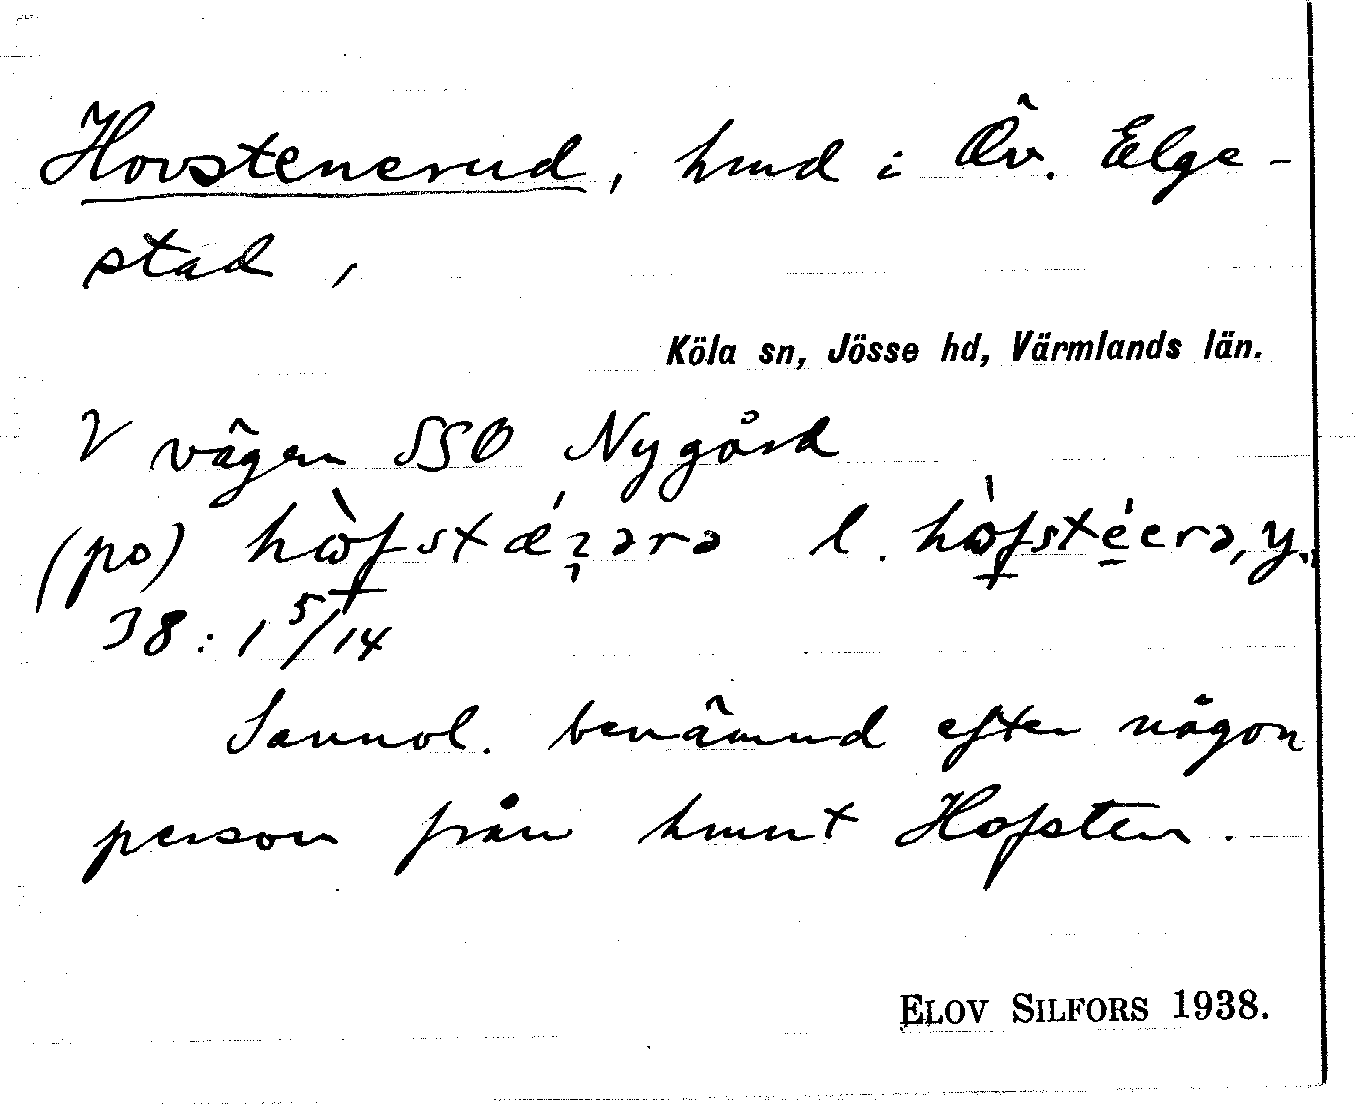 Hovstenerud, hmd i Öv. Elge-
stad,
Köla sn, Jösse hd, Värmlands län.
V vägen SSO Nygård
(po) hòfstǽnərə l. hòfstéerə, y.
38:1 5/14
Sannol. benämnd efter någon
person från hmnt Hofsten.
ELOV SILFORS 1938.